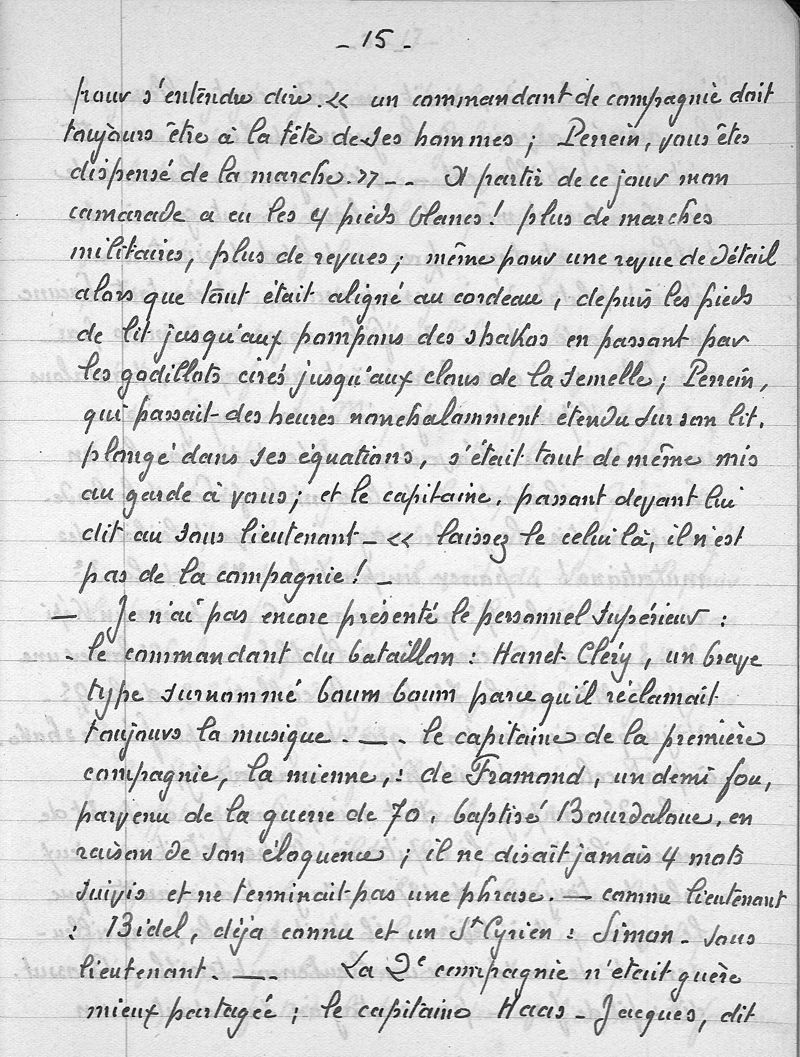 - 15 -
pour s'entendre dire.« un commandant de compagnie doit
toujours être à la tête de ses hommes ; Perrein, vous êtes
dispensé de la marche.» - - A partir de ce jour mon
camarade a eu les 4 pieds blancs! plus de marches
militaires, plus de revues ; même pour une revue de détail
alors que tout était aligné au cordeau, depuis les pieds
de lit jusqu'aux pompons des shakos en passant par
les godillots cirés jusqu'aux clous de la semelle ; Perrein,
qui passait des heures nonchalamment étendu sur son lit,
plongé dans ses équations, s'était tout de même mis
au garde à vous ; et le capitaine, passant devant lui
dit au sous lieutenant - « laissez le celui là, il n'est
pas de la compagnie ! -
— Je n'ai pas encore présenté le personnel supérieur :
- le commandant du bataillon : Hanet-Cléry, un brave
type surnommé boum boum parce qu'il réclamait
toujours la musique. — . le capitaine de la première
compagnie, la mienne, : de Framond, un demi fou,
parvenu de la guerre de 70, baptisé Bourdaloue, en
raison de son éloquence ; il ne disait jamais 4 mots
suivis et ne terminait pas une phrase. — comme lieutenant
: Bidel, déja connu et un St Cyrien : Simon - sous
lieutenant. — . La 2e compagnie n'était guère
mieux partagée ; le capitaine Haas - Jacques, dit